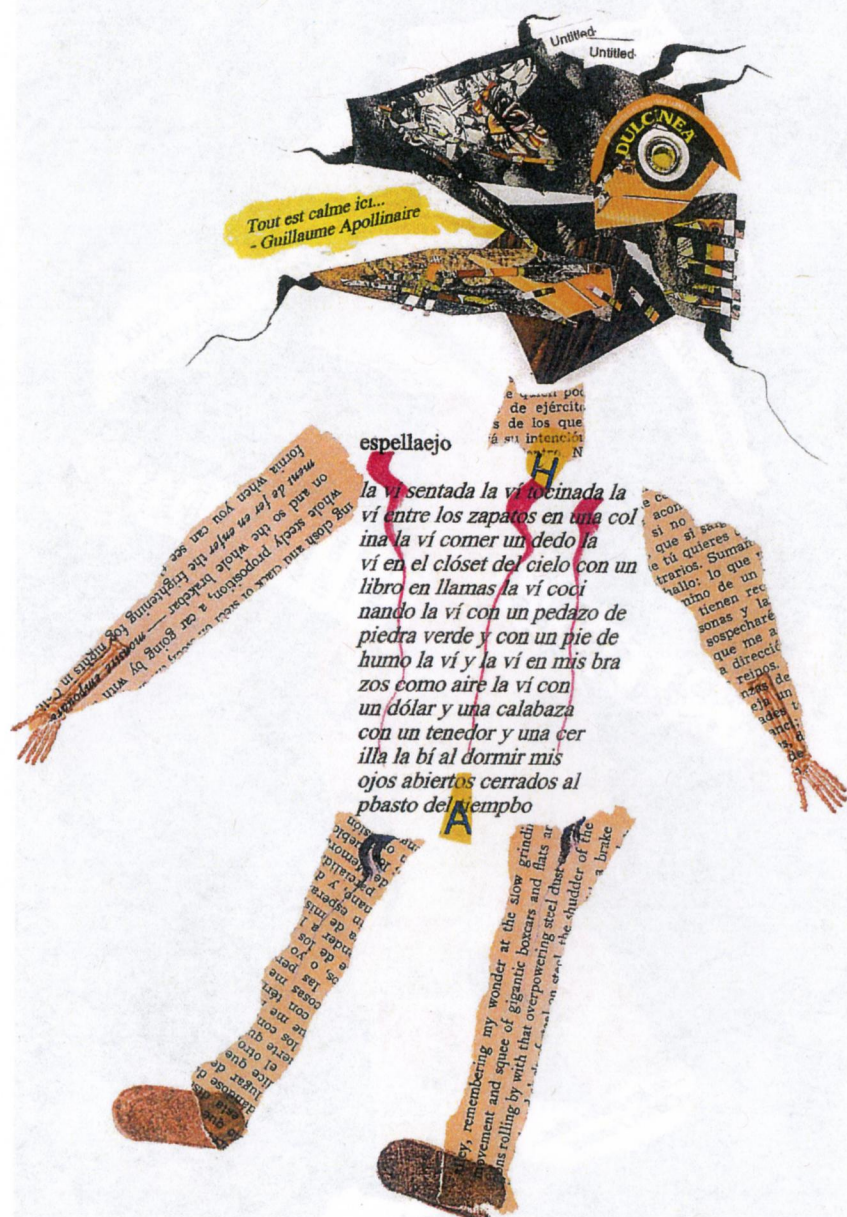 Untitled
Untitled
DULCINEA
Tout est calme ici...
- Guillaume Apollinaire
de ejércit
s de los que
á su intención
N
H
espellaejo
la ví sentada la ví tocinada la
ví entre los zapatos en una col
ina la ví comer un dedo la
ví en el clóset del cielo con un
libro en llamas la ví coci
nando la ví con un pedazo de
piedra verde y con un pie de
humo la ví y la ví en mis bra
zos como aire la ví con
un dólar y una calabaza
con un tenedor y una cer
illa la bí al dormir mis
ojos abiertos cerrados al
pbasto del tiempbo
A
fornia when you can see
ment de fer en enfer the frightening fog nights in Cali
on and so the whole brakebar
whole steely proposition, a car going by with
acon
si no
que si sa
e tú quieres
trarios. Suman
allo: lo que
mino de un
tienen rec
sonas y la
sospecharé
que me a
a direcci
reinos.
nzas de
eja un
ades t
anci
el otro
lugar de
dándose d
ley, remembering my wonder at the slow grindi
movement and squee of gigantic boxcars and flats ar
ons rolling by with that overpowering steel dust
steel, the shudder of the
a brake